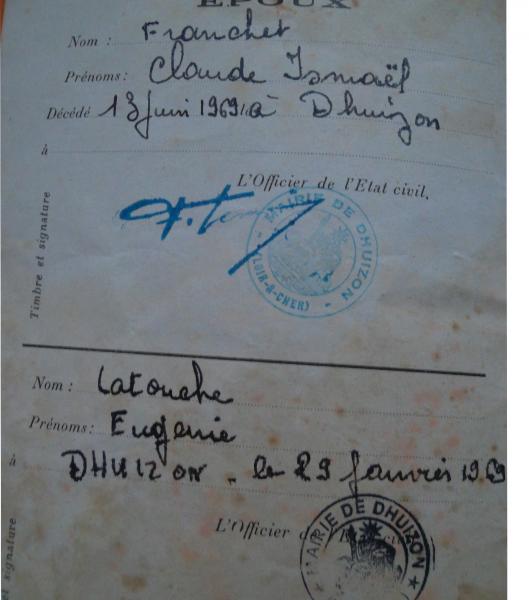 EPOUX
Nom : Franchet
Prénoms : Claude Ismaël
Décédé 13 juin 1969 à Dhuizon
à
L'Officier de l'Etat civil,
Timbre et signature
MAIRIE DE DHUIZON
(LOIR-&-CHER)
Nom : Latouche
Prénoms : Eugenie
à DHUIZON - le 29 Janvier 1969
L'Officier de l'Etat civil
MAIRIE DE DHUIZON
et signature